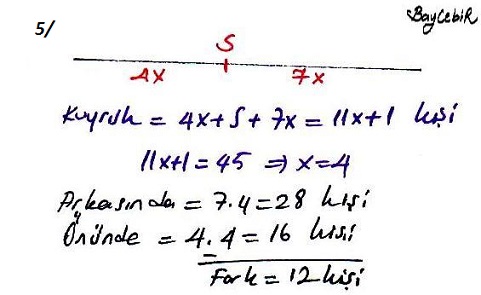 BayCebiR
5/
S
4x 7x
Kuyruk = 4x+S+7x = 11x+1 kişi
11x+1=45 ⇒ x=4
Arkasında = 7.4=28 kişi
Önünde = 4.4=16 kişi
Fark = 12 kişi